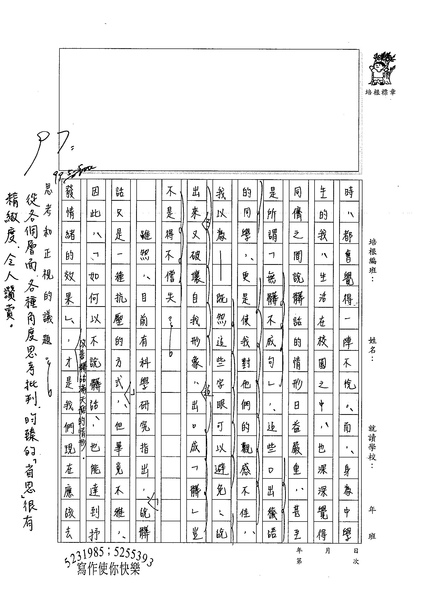 培根標章
培根編班：
姓名：
就讀學校：
年 班
年 月 日
第 次
時，都會覺得一陣不悅，而，身為中學
生的我，生活在校園之中，也深深覺得
同儕之間說髒話的情形日益嚴重，甚至
是所謂「無髒不成句」，這些口出穢語
的同學，更是使我對他們的觀感不佳，
我以為——既然這些字眼可以避免，說
出來又破壞自我形象，出口成「髒」豈
不是得不償失？
雖然，目前有科學研究指出，說髒
話又是一種抗壓的方式，但畢竟不雅，
因此，「如何以不說髒話，也能達到抒
發情緒的效果」，才是我們現在應該去
思考和正視的議題。
改善髒話滿天飛的情形，
97
從各個層面、各種角度思考批判，
時臻的「省思」很有
精緻度，令人讚賞。
5231985；5255393
寫作使你快樂